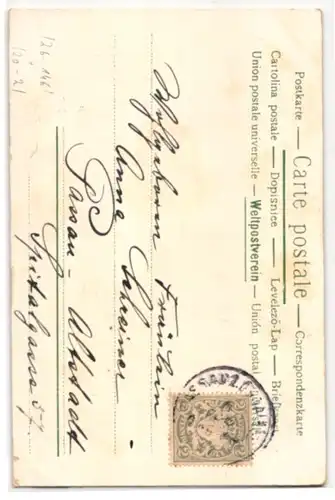 Postkarte — Carte postale — Correspondenzkarte
Cartolina postale — Dopisnice — Levelező-Lap — Brief
Union postale universelle — Weltpostverein — Unión postal
Wohlgeboren Fräulein
Anna Schreiner
Passau - Altstadt
Spitalgasse 57.